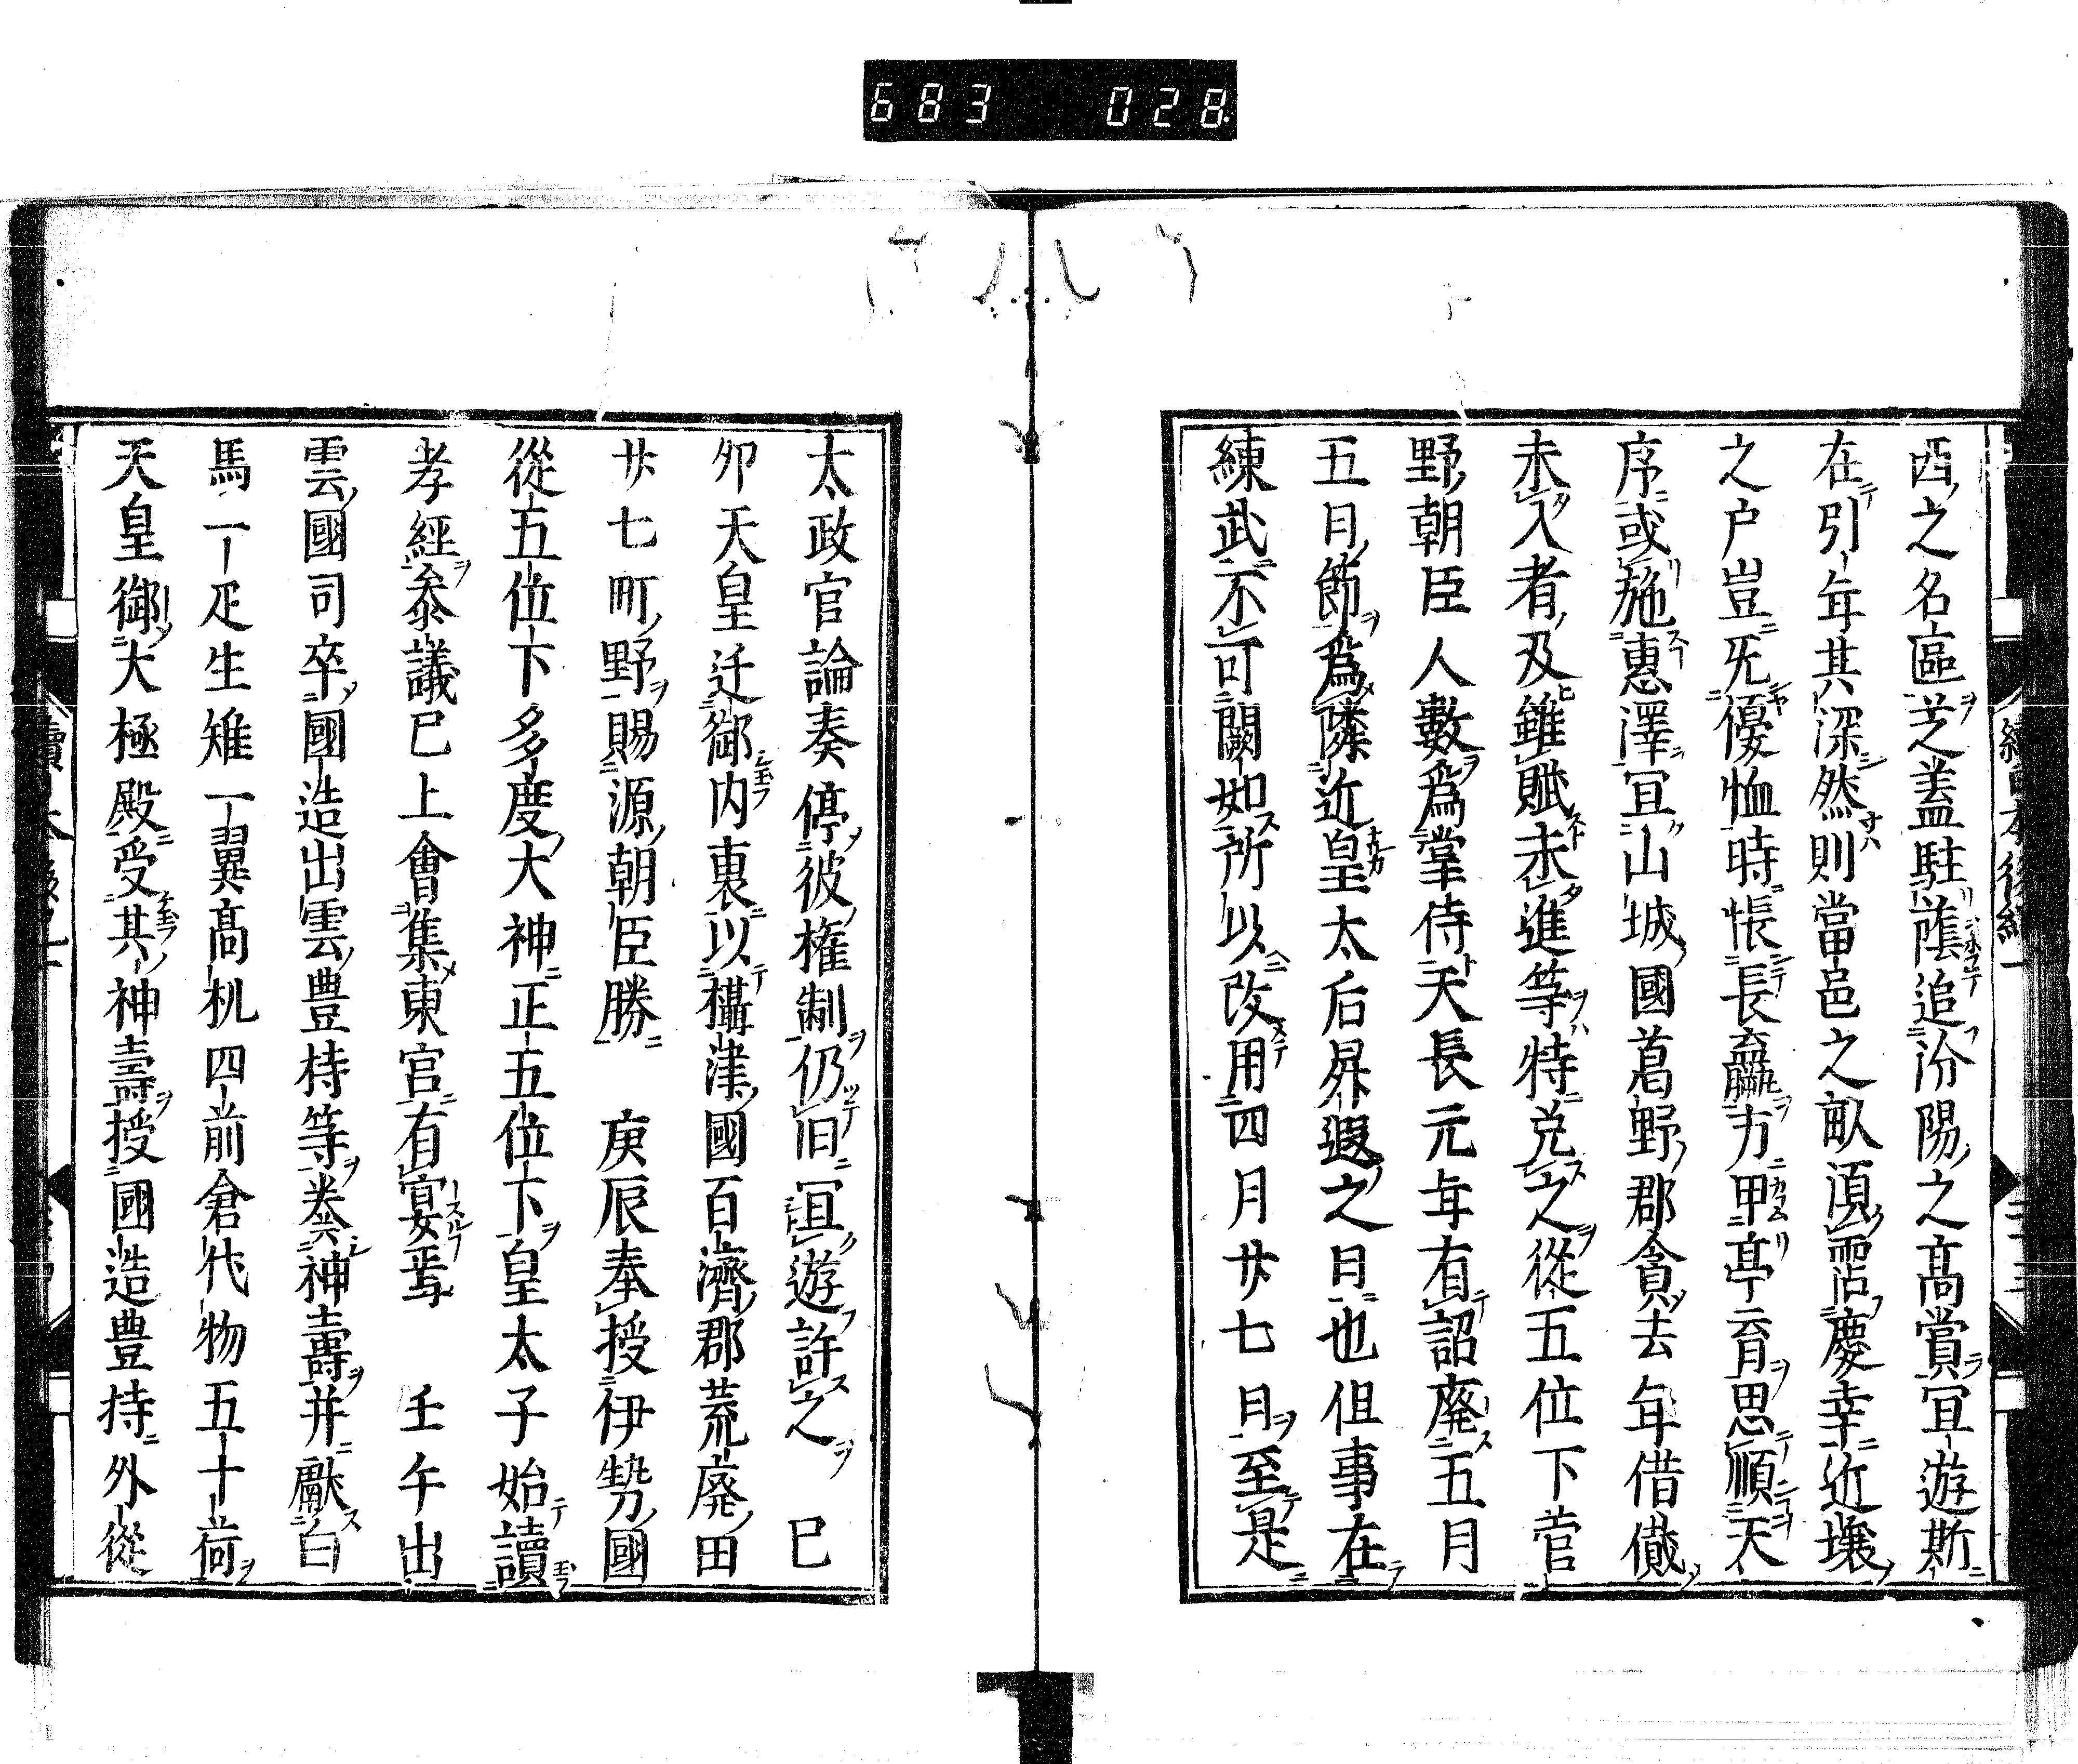 683 028
西之名區芝蓋駐蔭追汾陽之高賞宜遊斯
在引年其深然則當邑之畝須霑慶幸近壤
之戶豈旡優恤時悵長嬴方甲亭育思順天
序或施惠澤宜山城國葛野郡貪去年借儎
未入者及雖賦未進等特免之從五位下菅
野朝臣人數爲掌侍天長元年有詔廃五月
五日節爲隣近皇太后昇遐之日也但事在
練武不可闕如所以改用四月廿七日至是
太政官論奏停彼権制仍旧宜遊許之 巳
卯天皇迁御内裏以攝津國百濟郡荒廃田
廿七町野賜源朝臣勝 庚辰奉授伊勢國
從五位下多度大神正五位下皇太子始讀
孝經叅議已上會集東宮有宴焉 壬午出
雲國司卒國造出雲豊持等奏神壽并獻白
馬一疋生雉一翼高机四前倉代物五十荷
天皇御大極殿受其神壽授國造豊持外從